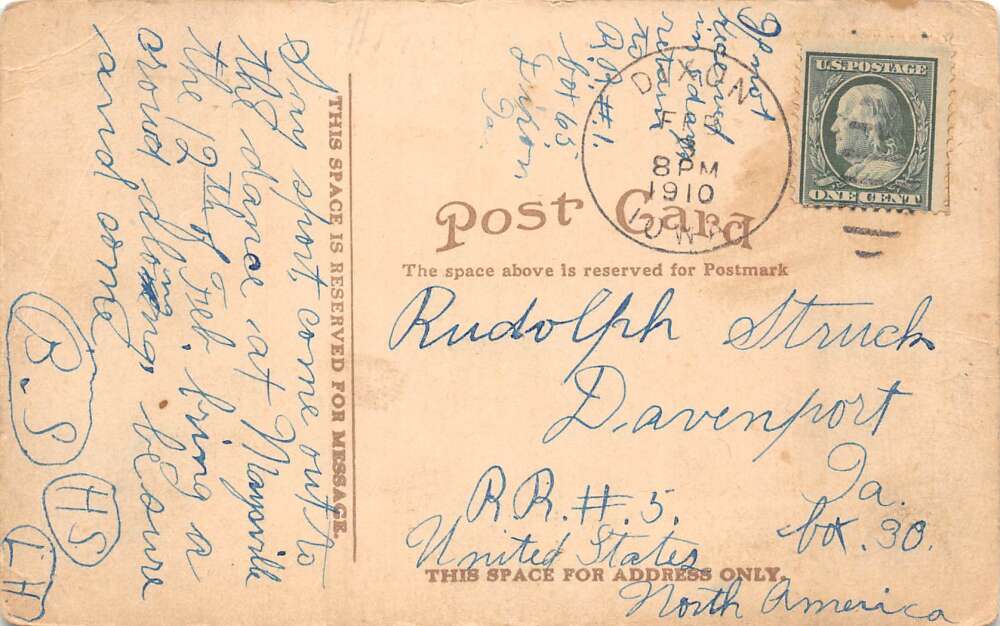 If not
received
in 5 days
return
to
R.R. #. 1.
box 65
Dixon
Ia.
U.S. POSTAGE
ONE CENT
DIXON
FEB
8 PM
1910
IOWA
Post Card
The space above is reserved for Postmark
THIS SPACE IS RESERVED FOR MESSAGE.
Say sport come out to
the dance at Maysville
the 12th of Feb. bring a
crowd along, be sure
and come
B.S
HS
LH
Rudolph Struck
Davenport
Ia.
R R. #. 5.
bx. 30.
United States
THIS SPACE FOR ADDRESS ONLY.
North America